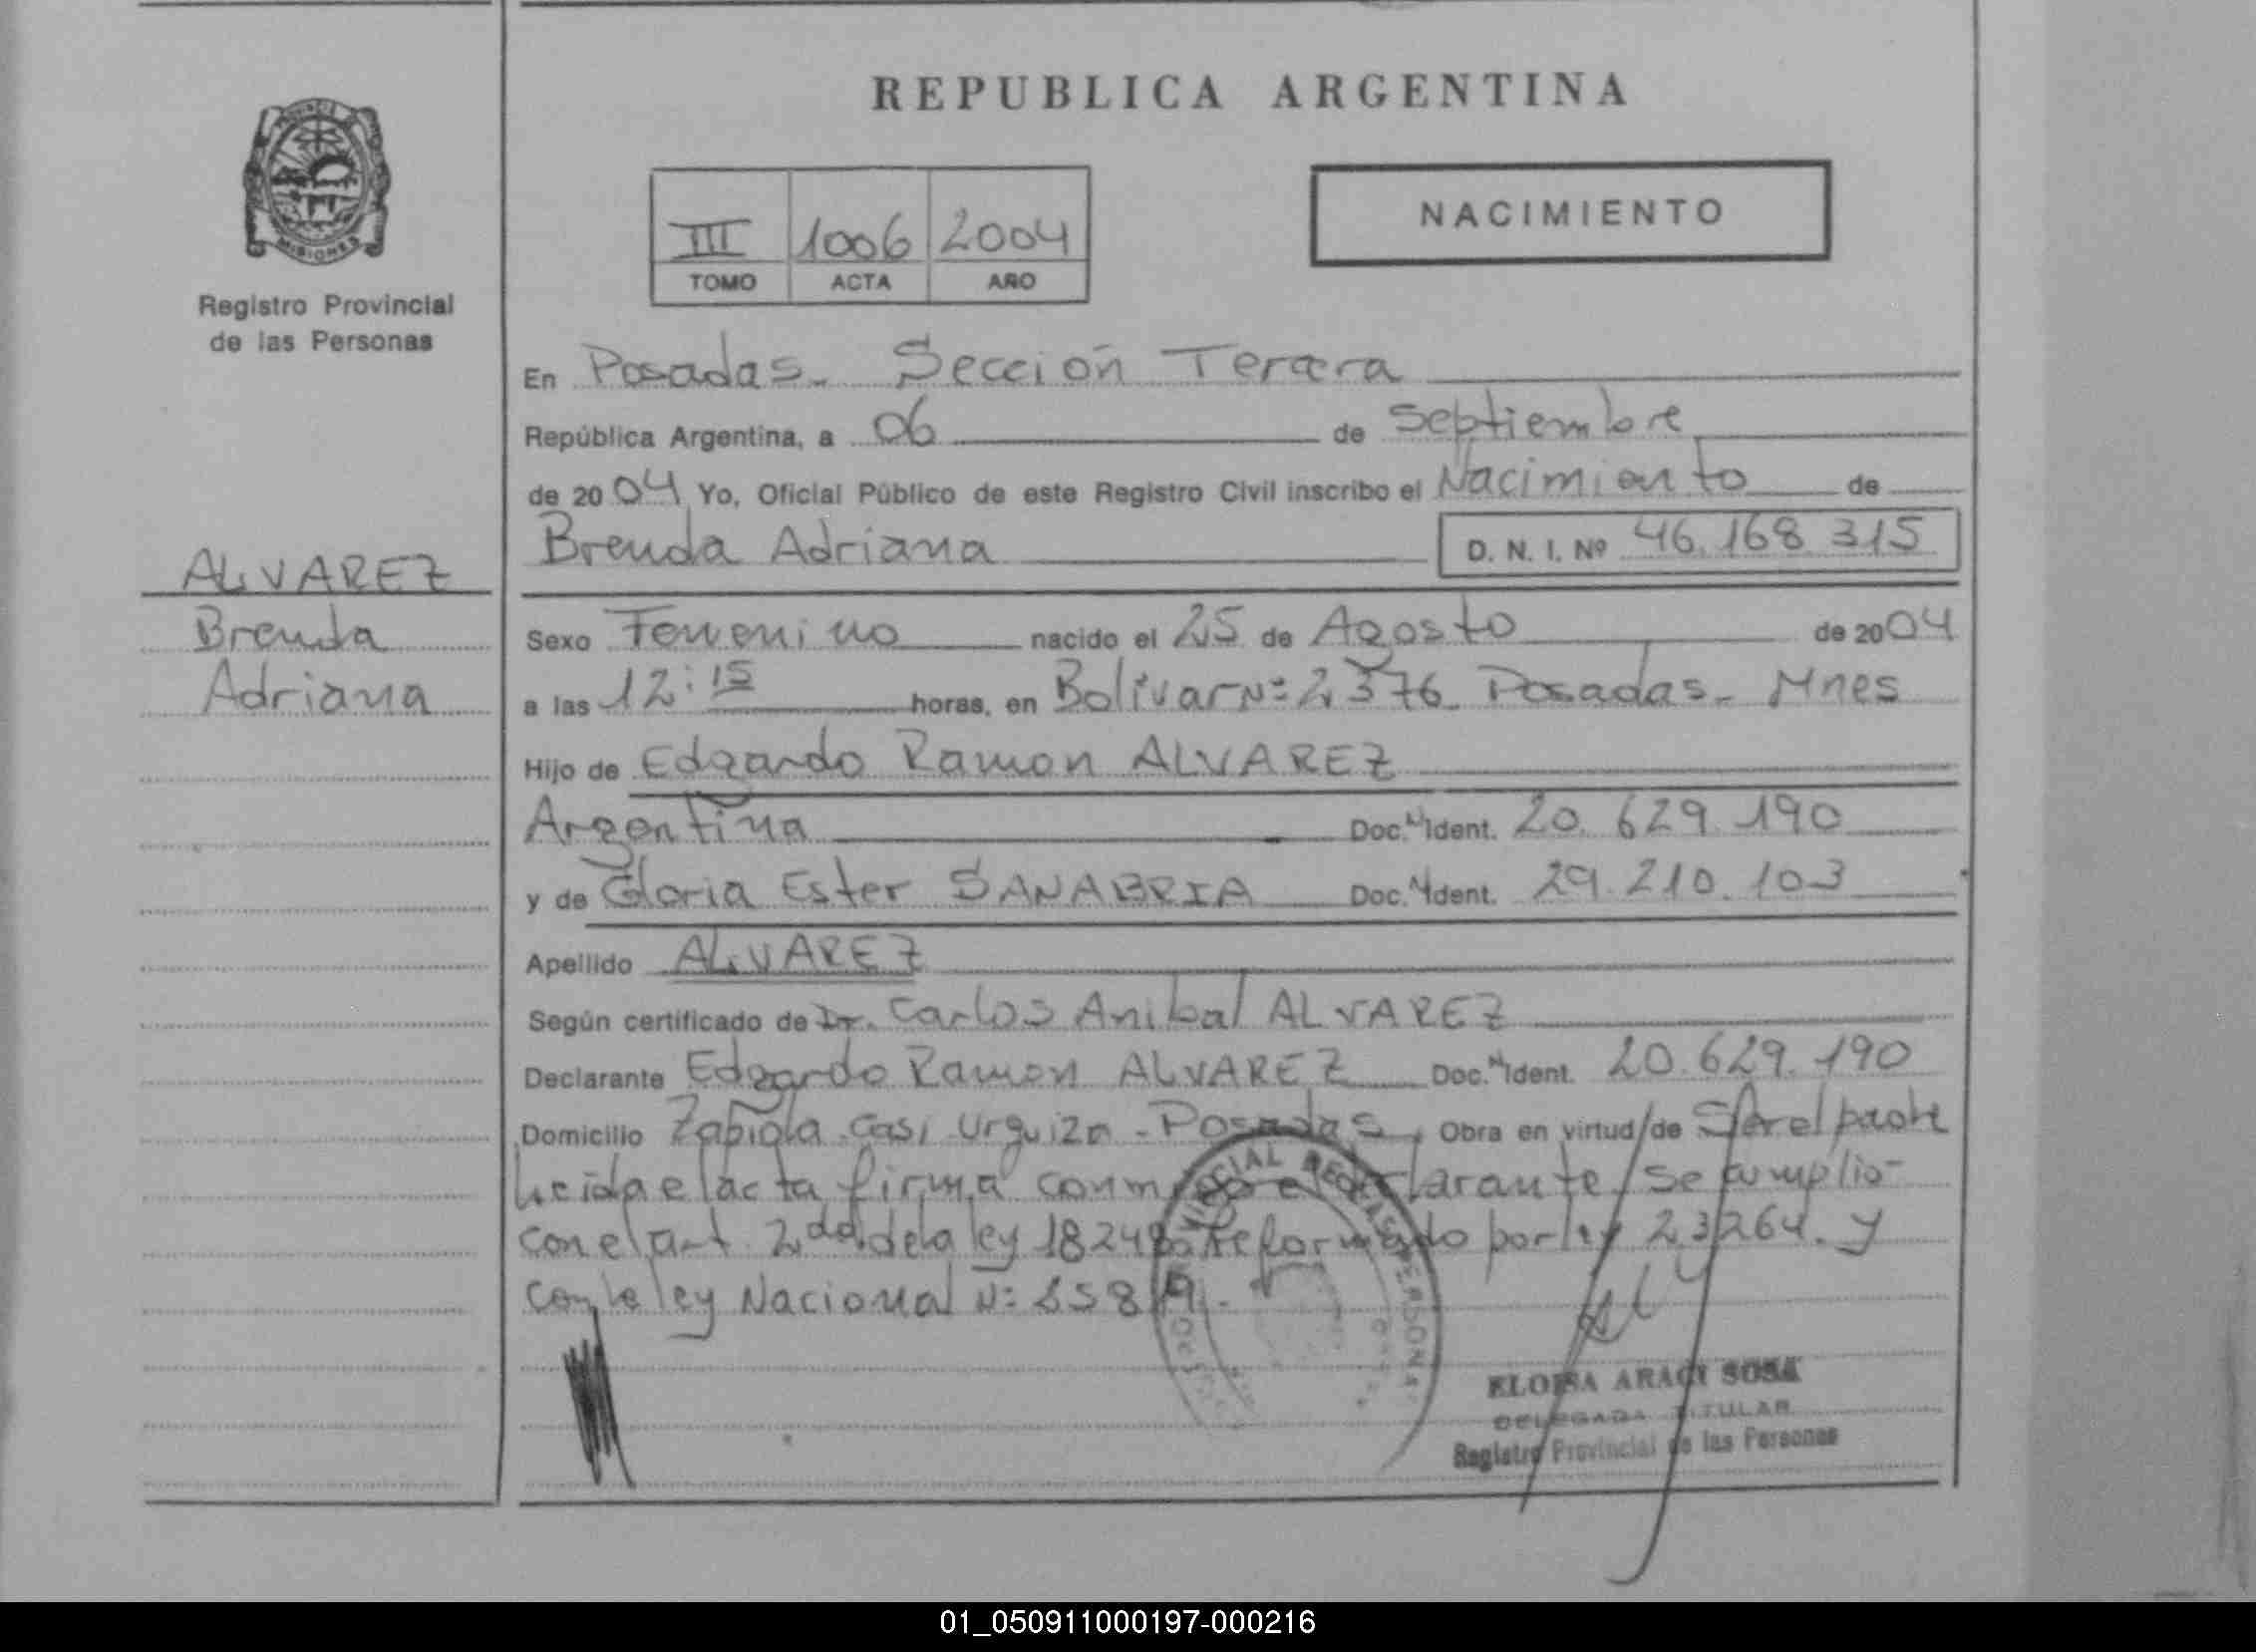 REPUBLICA ARGENTINA
NACIMIENTO
III 1006 2004
TOMO ACTA AÑO
MISIONES
Registro Provincial
de las Personas
En Posadas. Sección Tercera
República Argentina, a 06 de Septiembre
de 2004 Yo, Oficial Público de este Registro Civil inscribo el Nacimiento de
Brenda Adriana D. N. I. Nº 46.168.315
ALVAREZ
Brenda
Adriana
Sexo Femenino nacido el 25 de Agosto de 2004
a las 12:15 horas, en Bolivar Nº 2376. Posadas. Mnes
Hijo de Edgardo Ramon ALVAREZ
Argentina Doc. Ident. 20.629.190
y de Gloria Ester SANABRIA Doc. Ident. 29.210.103
Apellido ALVAREZ
Según certificado de Dr. Carlos Anibal ALVAREZ
Declarante Edgardo Ramon ALVAREZ Doc. Ident. 20.629.190
Domicilio Zapiola casi Urquiza - Posadas, Obra en virtud de Ser el padre
Leida el acta firma conmigo el declarante, se cumplio
con el art 2do de la ley 18248 reformado por ley 23264. y
con la ley Nacional Nº
ELOISA ARACI SOSA
DELEGADA TITULAR
Registro Provincial de las Personas
01_050911000197-000216